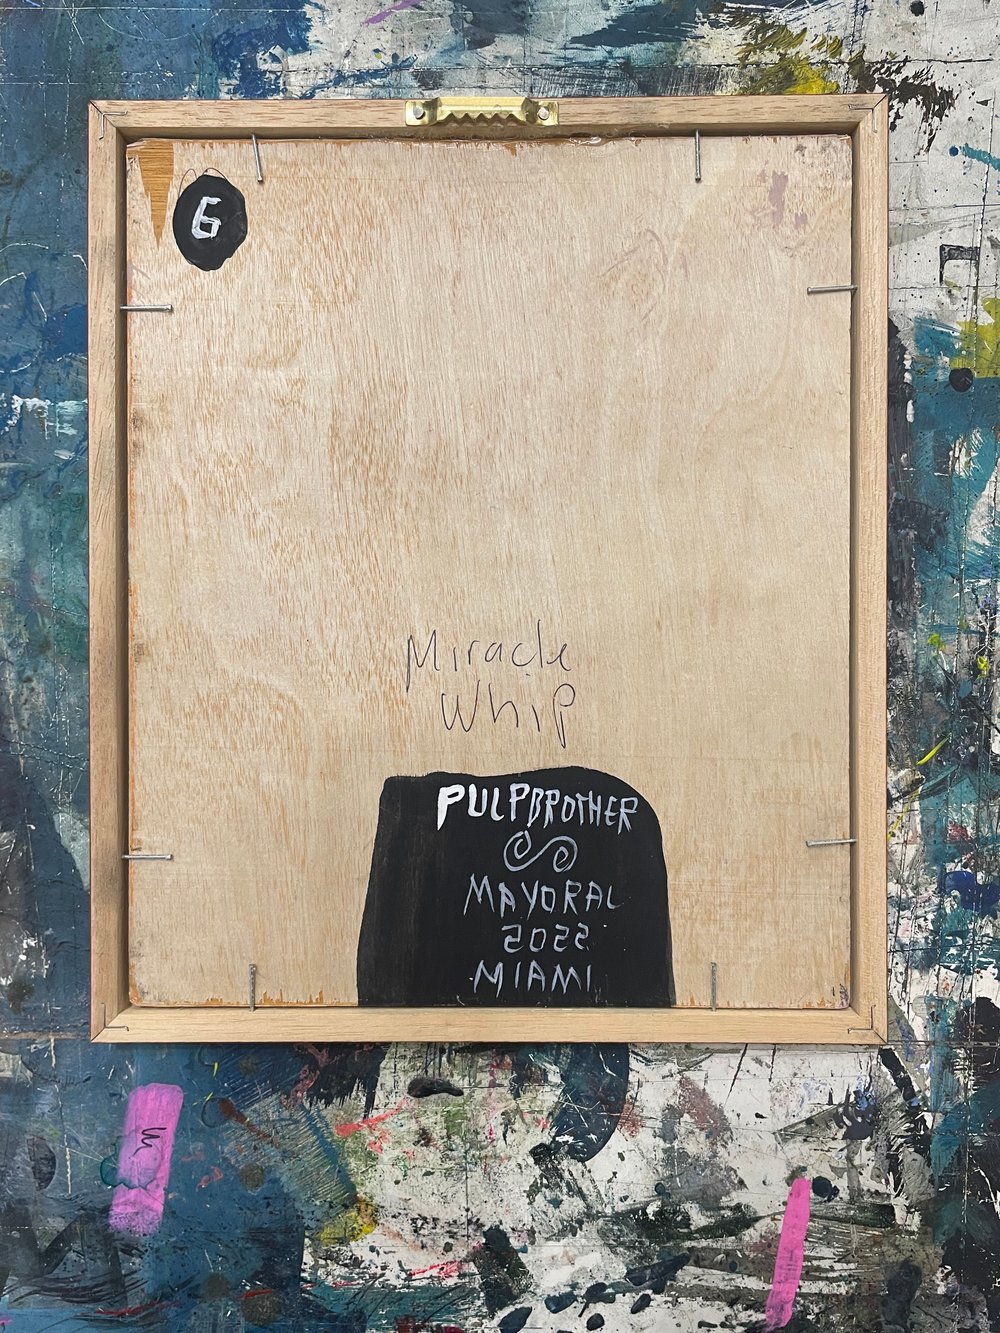 6
Miracle
Whip
PULPBROTHER
MAYORAL
2022
MIAMI